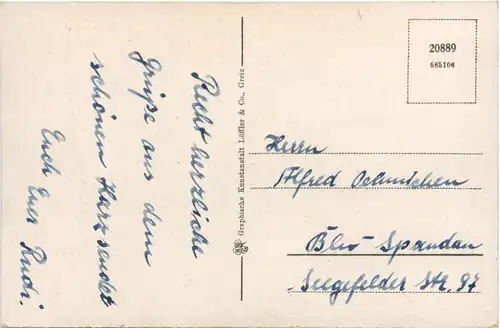 Recht herzliche
Grüße aus dem
schönen Harz sendet
Euch Euer Rudi.
Graphische Kunstanstalt Löffler & Co., Greiz
20889
685106
Herrn
Alfred Oehmichen
Bln-Spandau
Seegefelder Str. 97